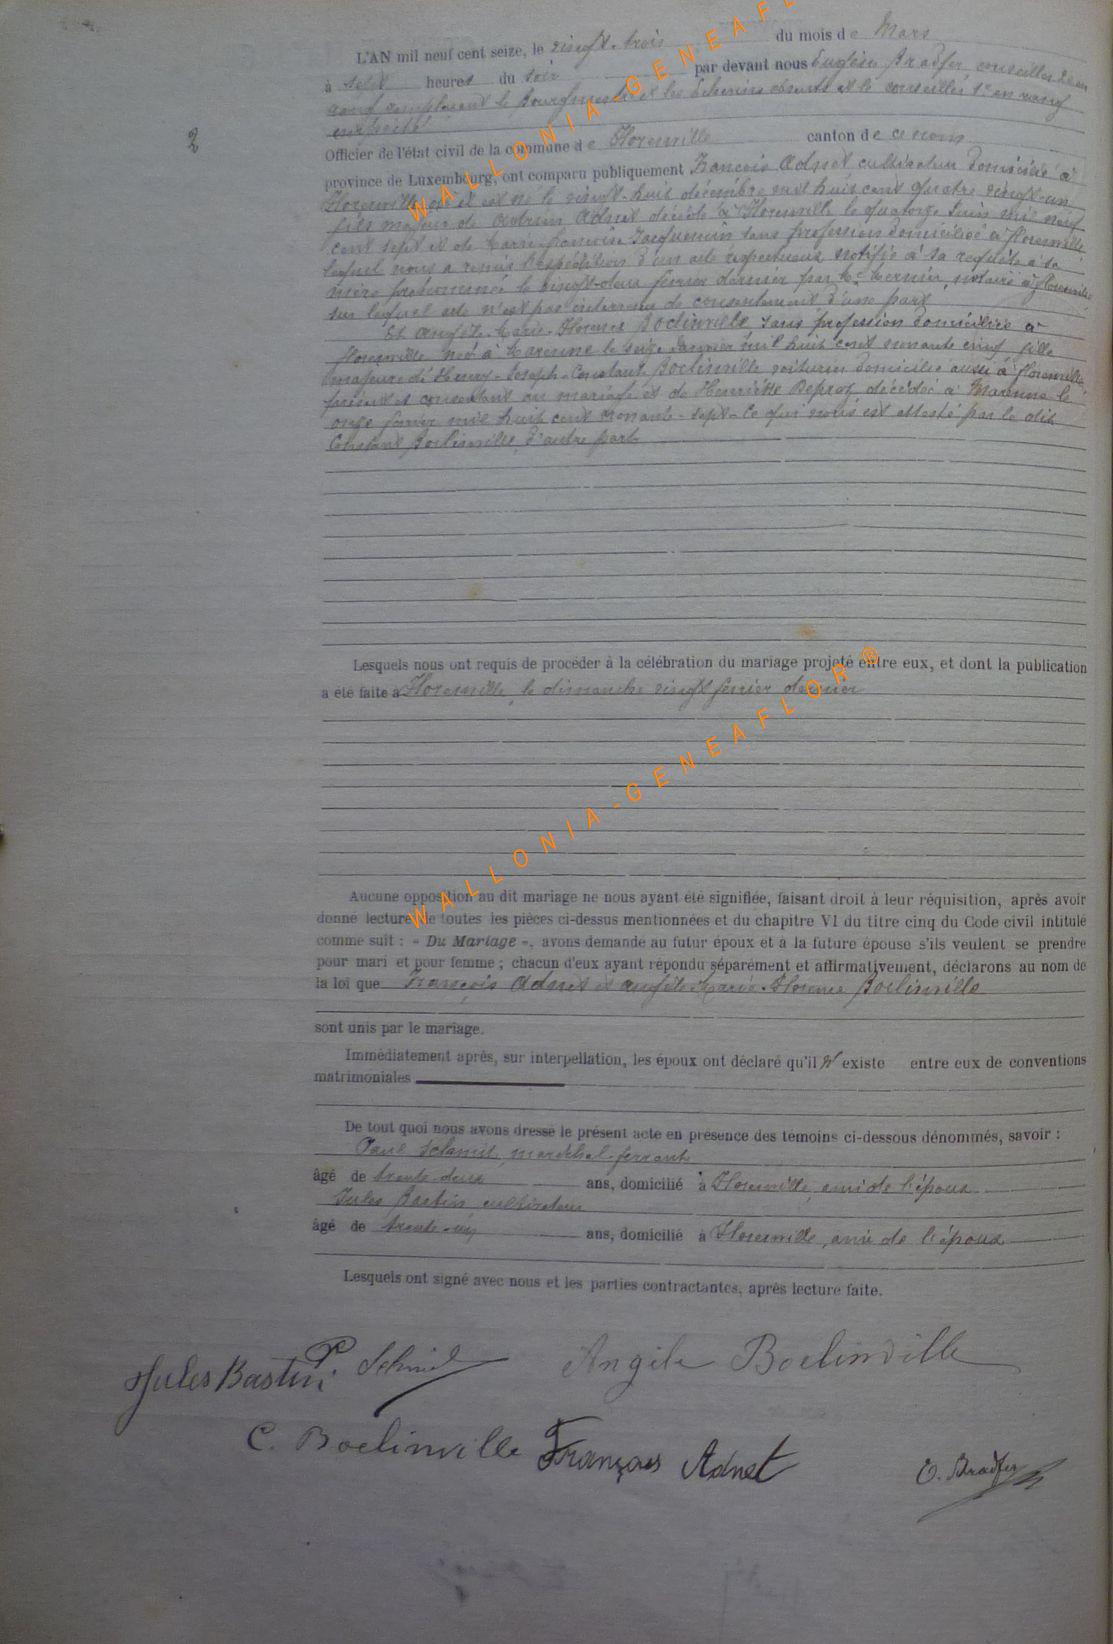 L'AN mil neuf cent seize, le vingt-trois du mois de Mars
à sept heures du soir par devant nous Eugène Bradfer, conseiller 2e en
rang remplaçant le Bourgmestre et les Echevins absents et le conseiller 1er en rang
empêché
2
Officier de l'état civil de la commune de Florenville canton de ce nom
province de Luxembourg, ont comparu publiquement François Adnet cultivateur domicilié à
Florenville où il est né le vingt-huit décembre mil huit cent quatre vingt-un
fils majeur de Adrien Adnet décédé à Florenville le quatorze Juin mil neuf
cent sept et de Marie-françoise Jacquemin sans profession domiciliée à florenville
lequel nous a remis l'expédition d'un acte respectueux notifié à sa requête à sa
mère prénommée le vingt-deux février dernier par Me notaire à florenville
sur lequel acte n'est pas intervenu de consentement d'une part
Et Angèle-Marie-Florence Boclinville sans profession domiciliée à
florenville née à Marenne le seize Janvier mil huit cent nonante cinq fille
majeure de Henry-Joseph-Constant Boclinville voiturier domicilié aussi à florenville
présent et consentant au mariage et de Henriette Deproz décédée à Marenne le
onze février mil huit cent nonante-sept- Ce qui nous est attesté par le dit
Constant Boclinville, d'autre part
Lesquels nous ont requis de procéder à la célébration du mariage projeté entre eux, et dont la publication
a été faite à Florenville, le dimanche vingt février dernier
Aucune opposition au dit mariage ne nous ayant été signifiée, faisant droit à leur réquisition, après avoir
donné lecture de toutes les pièces ci-dessus mentionnées et du chapitre VI du titre cinq du Code civil intitulé
comme suit : « Du Mariage », avons demandé au futur époux et à la future épouse s'ils veulent se prendre
pour mari et pour femme ; chacun d'eux ayant répondu séparément et affirmativement, déclarons au nom de
la loi que François Adnet et Angèle-Marie-Florence Boclinville
sont unis par le mariage.
Immédiatement après, sur interpellation, les époux ont déclaré qu'il n'existe entre eux de conventions
matrimoniales
De tout quoi nous avons dressé le présent acte en présence des témoins ci-dessous dénommés, savoir :
Paul Schmit, maréchal-ferrant
âgé de trente-deux ans, domicilié à Florenville, ami de l'époux
Jules Bastin, cultivateur
âgé de trente-un ans, domicilié à Florenville, ami de l'époux
Lesquels ont signé avec nous et les parties contractantes, après lecture faite.
Jules Bastin P. Schmit Angèle Boclinville
C. Boclinville François Adnet E. Bradfer
WALLONIA-GENEAFLOR®
WALLONIA-GENEAFL